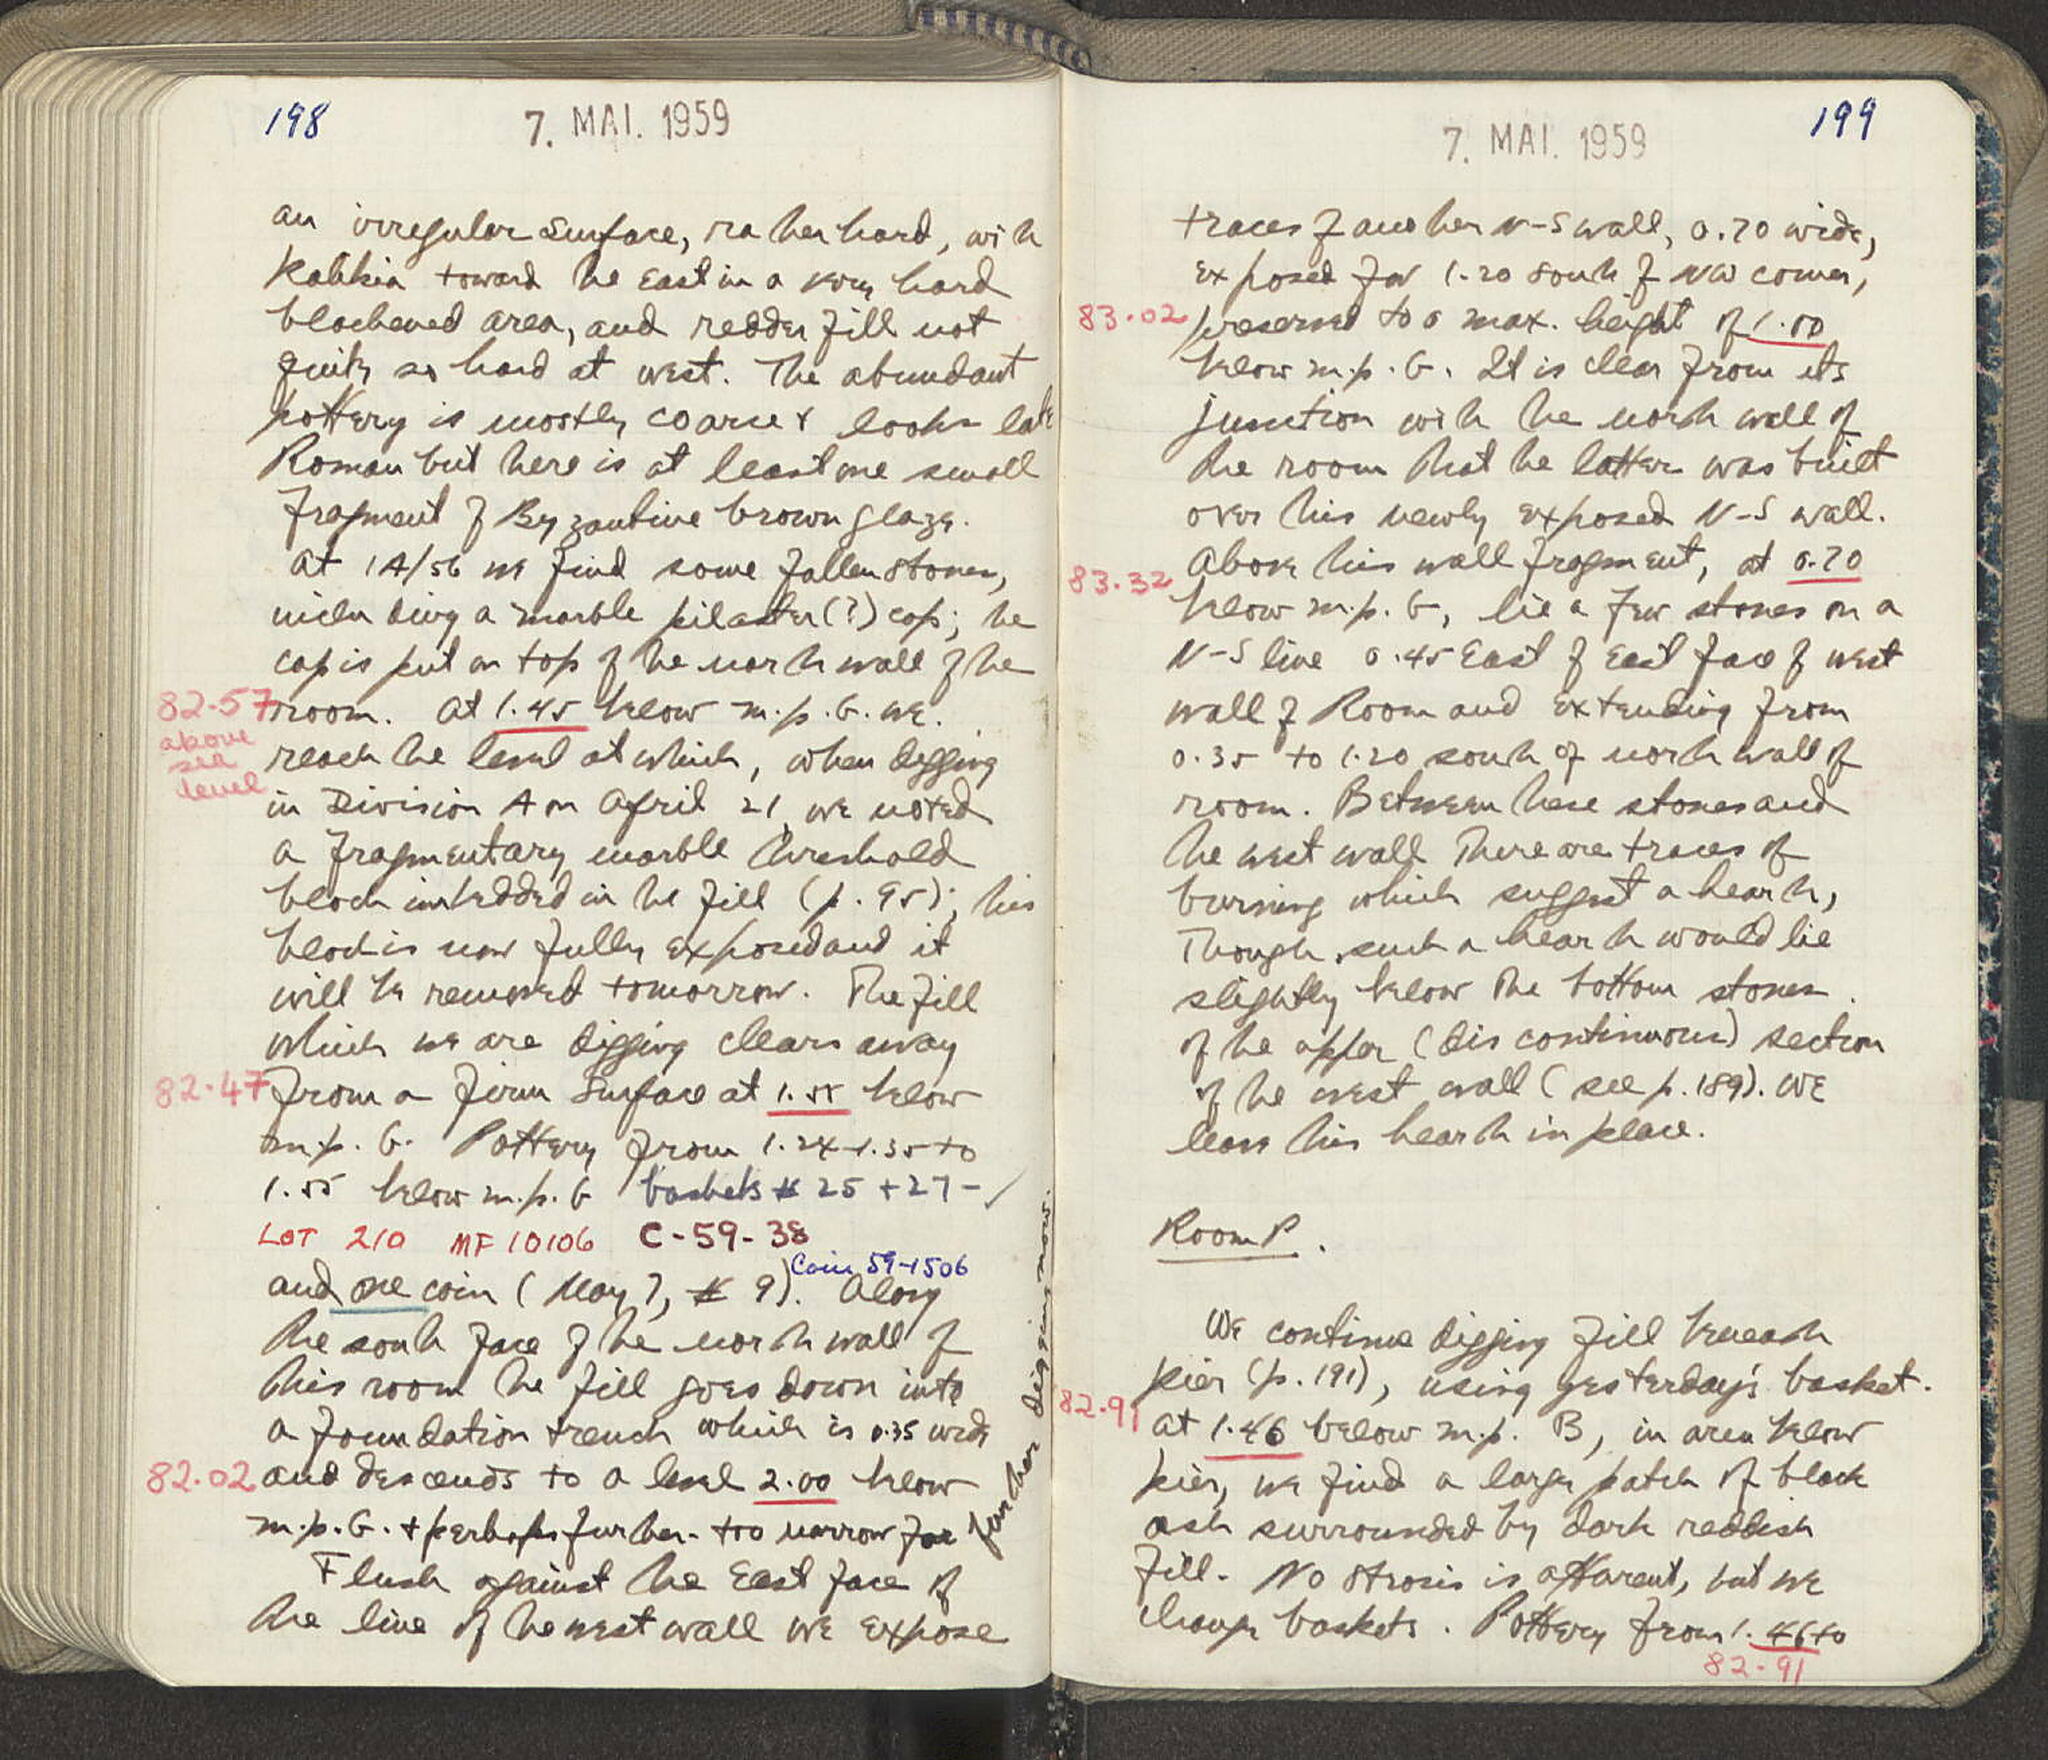 198
7. MAI. 1959
an irregular surface, rather hard, with
Kalikia toward the East in a very hard
blackened area, and redder fill not
quite so hard at west. The abundant
pottery is mostly coarse + looks late
Roman but there is at least one small
fragment of Byzantine brown glaze.
At 1A/56 we find some fallen stones,
including a marble pilaster(?) cap; the
cap is put on top of the north wall of the
82.57 room. At 1.45 below m.p. G. we
above sea level
reach the level at which, when digging
in Division A on April 21, we noted
a fragmentary marble threshold
block imbedded in the fill (p. 95); this
block is now fully exposed and it
will be removed tomorrow. The fill
which we are digging clears away
82.47 from a firm surface at 1.55 below
m.p. G. Pottery from 1.24-1.35 to
1.55 below m.p. G baskets # 25 + 27 - ✓
LOT 210 MF 10106 C-59-38
and one coin (May 7, # 9). Coin 59-1506 Along
the south face of the north wall of
this room the fill goes down into
a foundation trench which is 0.35 wide
82.02 and descends to a level 2.00 below
m.p. G. + perhaps further - too narrow for
further digging now.
Flush against the East face of
the line of the west wall we expose
7. MAI. 1959
199
traces of another N-S wall, 0.70 wide,
exposed for 1.20 south of NW corner,
83.02 preserved to a max. height of 1.00
below m.p. G. It is clear from its
junction with the north wall of
the room that the latter was built
over this newly exposed N-S wall.
Above this wall fragment, at 0.70
83.32 below m.p. G, lie a few stones on a
N-S line 0.45 East of East face of west
wall of Room and extending from
0.35 to 1.20 south of north wall of
room. Between these stones and
the west wall there are traces of
burning which suggest a hearth,
though such a hearth would lie
slightly below the bottom stones
of the upper (discontinuous) section
of the west wall (see p. 189). We
leave this hearth in place.
Room P.
We continue digging fill beneath
pier (p. 191), using yesterday's basket.
82.91 At 1.46 below m.p. B, in area below
pier, we find a large patch of black
ash surrounded by dark reddish
fill. No strosis is apparent, but we
change baskets. Pottery from 1.46 to
82.91